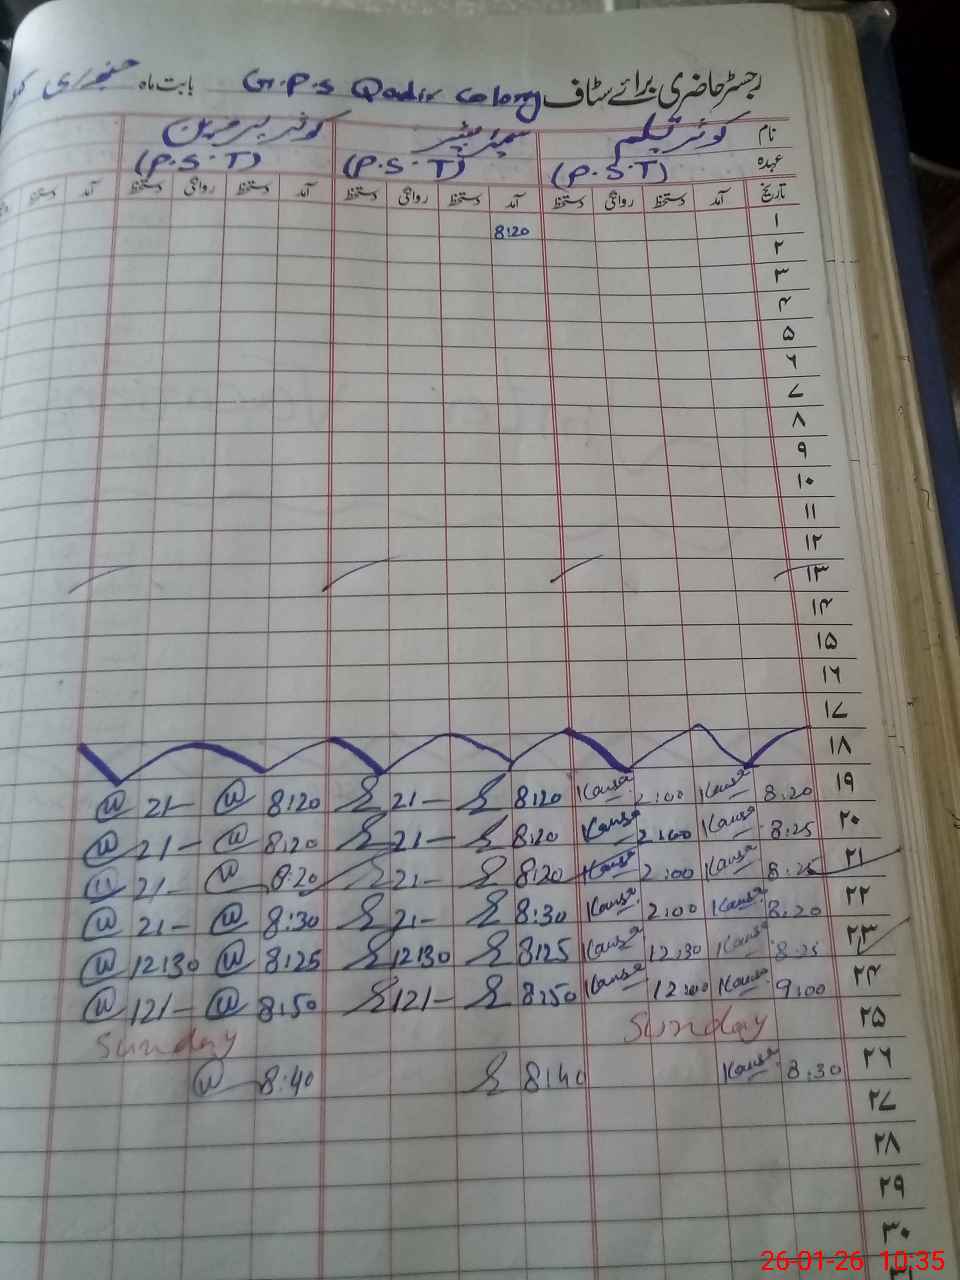 رجسٹر حاضری برائے سٹاف G.P.S Qadir Colony بابت ماہ جنوری
نام کوثر تسلیم کوثر پروین
عہدہ (P.S.T) (P.S.T) (P.S.T)
تاریخ آمد دستخط روانگی دستخط آمد دستخط روانگی دستخط آمد دستخط روانگی دستخط آمد
۱ 8:20
۲
۳
۴
۵
۶
۷
۸
۹
۱۰
۱۱
۱۲
۱۳
۱۴
۱۵
۱۶
۱۷
۱۸
۱۹ 8:20 Kausar 2:00 Kausar 8:20 2/- 8:20 2/-
۲۰ 8:25 Kausar 2:00 Kausar 8:20 2/- 8:20 2/-
۲۱ 8:25 Kausar 2:00 Kausar 8:20 2/- 8:20 2/-
۲۲ 8:20 Kausar 2:00 Kausar 8:30 2/- 8:30 2/-
۲۳ 8:25 Kausar 12:30 Kausar 8:25 12:30 8:25 12:30
۲۴ 9:00 Kausar 12:00 Kausar 8:50 12/- 8:50 12/-
۲۵ Sunday Sunday
۲۶ 8:30 Kausar 8:40 8:40
۲۷
۲۸
۲۹
۳۰
26-01-26 10:35